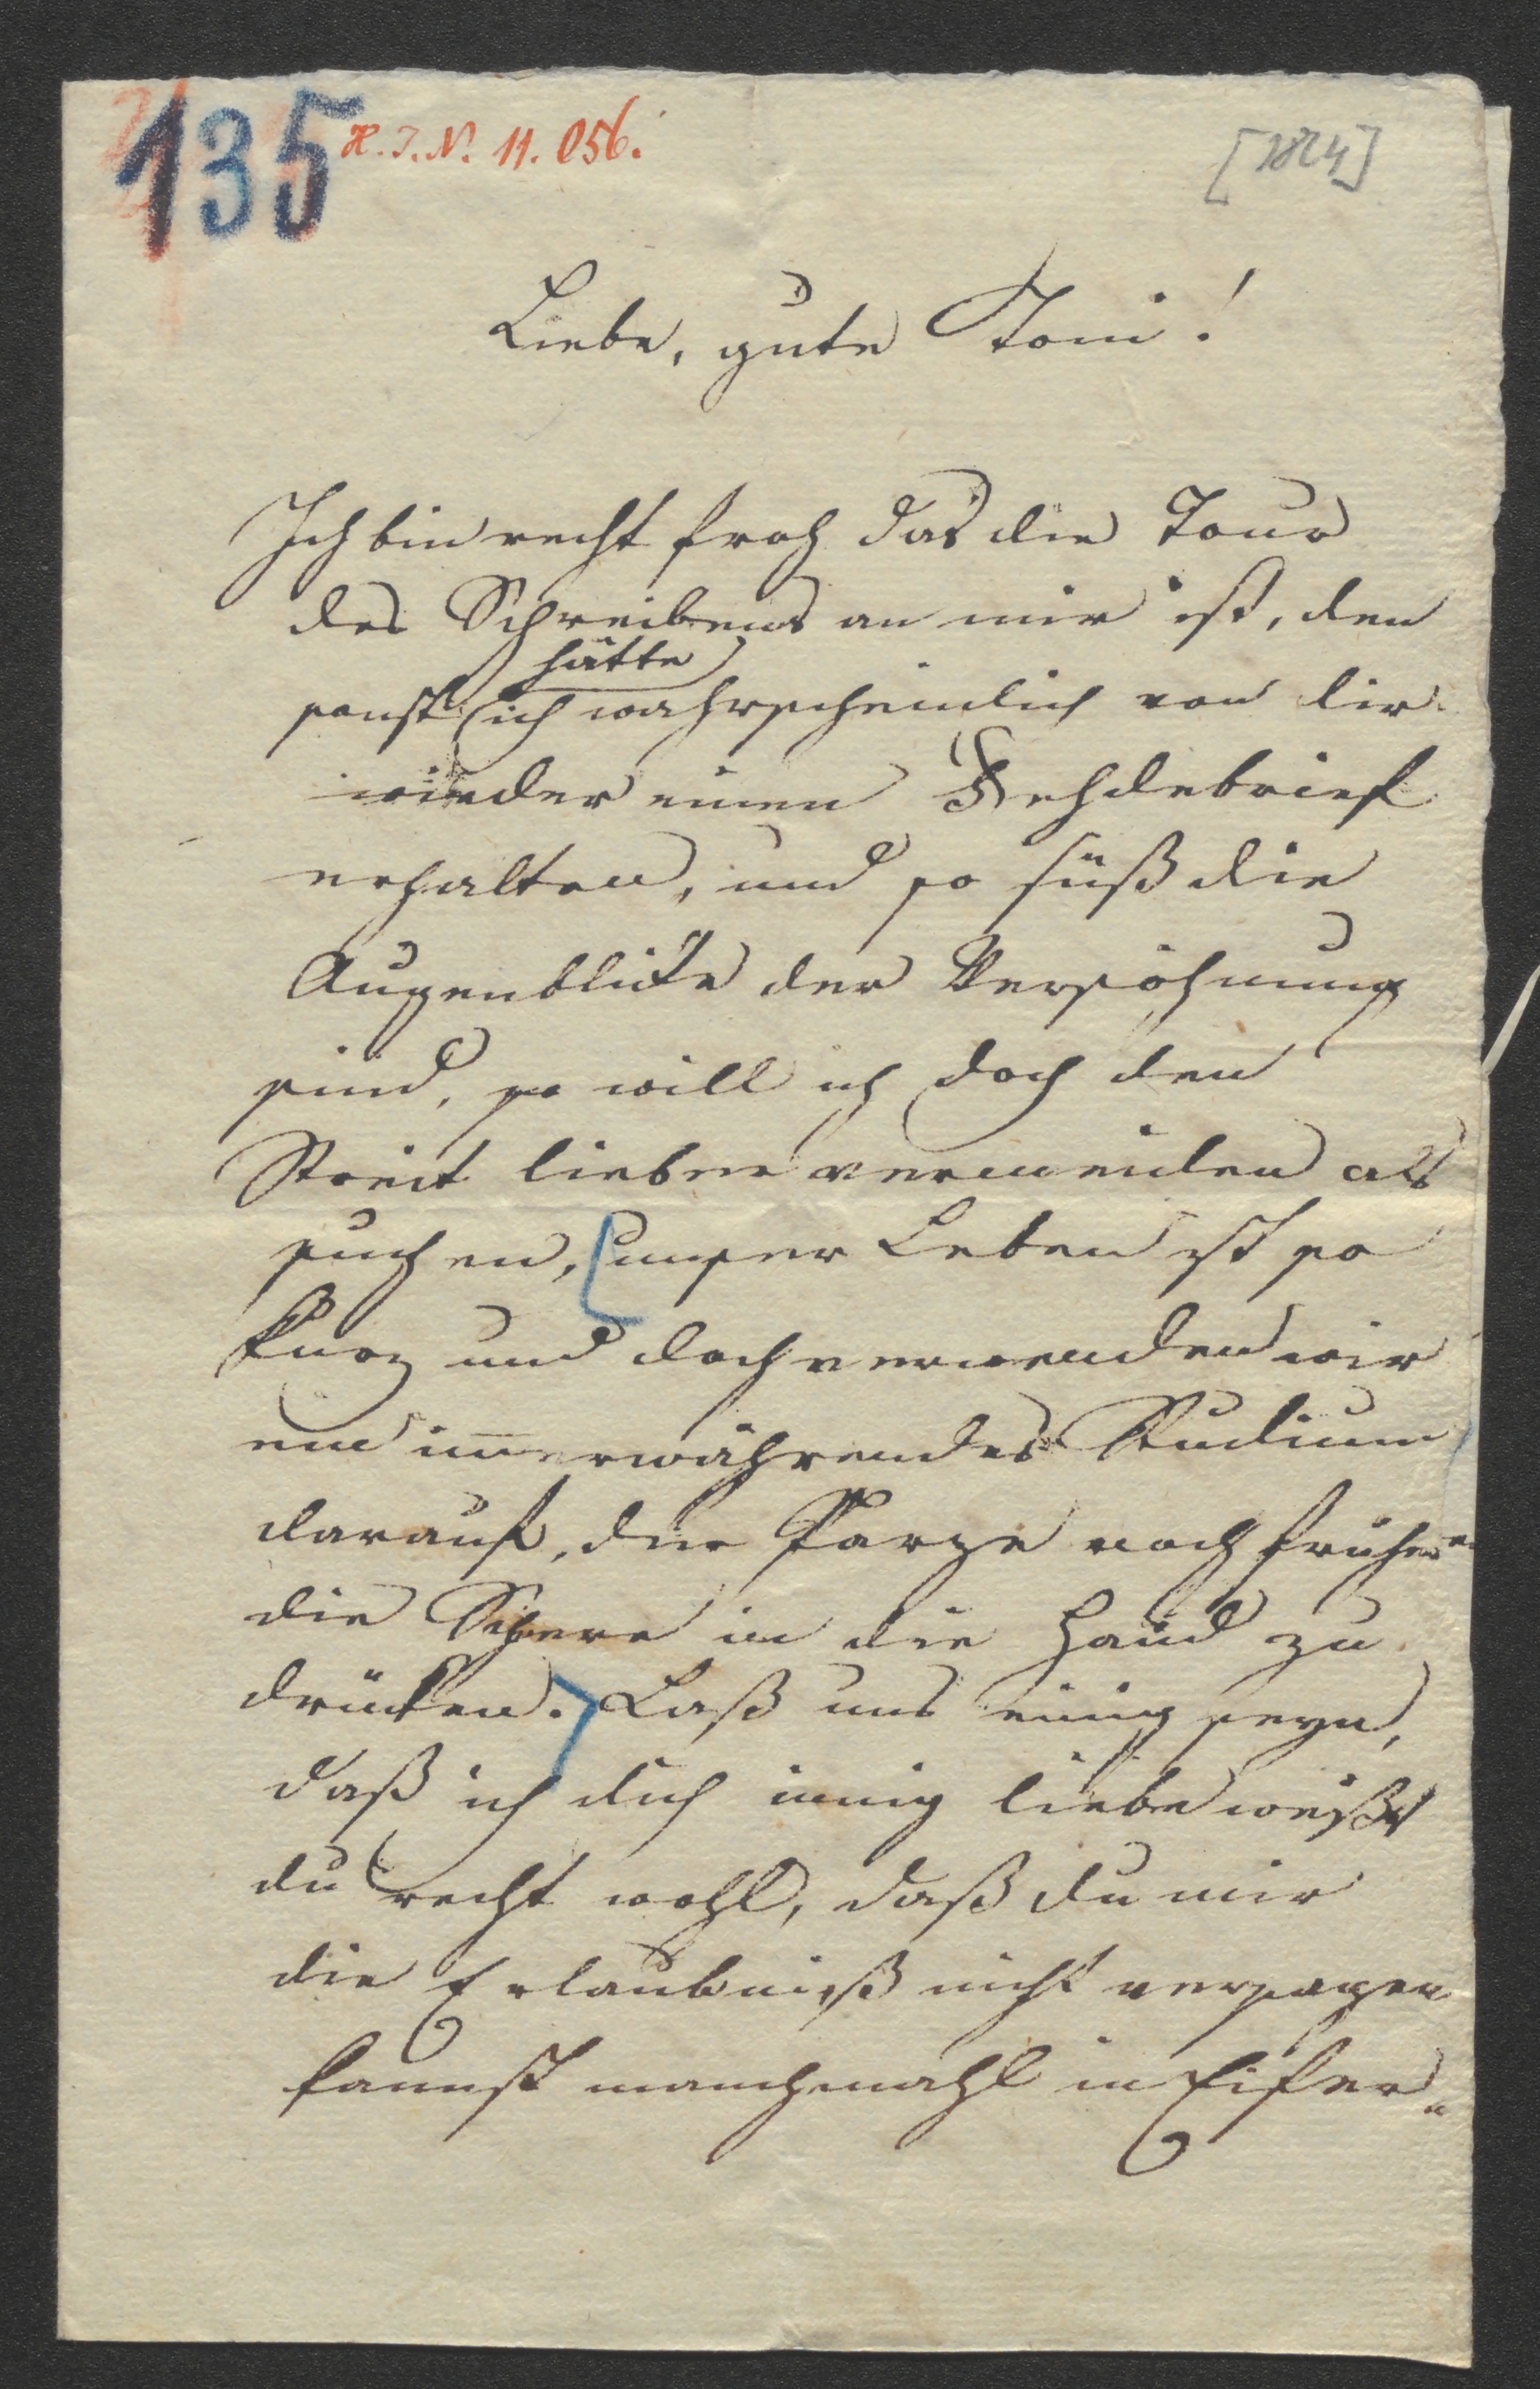 135 H. I. N. 11.056.
[1824]
Liebe, gute Toni!
Ich bin recht froh das die Tour
des Schreibens an mir ist, den
hätte
sonst ich wahrscheinlich von dir
wieder einen Fehdebrief
erhalten, und so süß die
Augenblicke der Versöhnung
sind, so will ich doch den
Streit lieber vermeiden als
suchen, unser Leben ist so
kurz und doch verwenden wir
ein im̅erwährendes Studium
darauf, der Parze noch früher
die Schere in die Hand zu
drücken. Laß uns einig seyn,
daß ich dich innig liebe weißt
du recht wohl, daß du mir
die Erlaubniß nicht versagen
kannst manchmahl in Eifer„